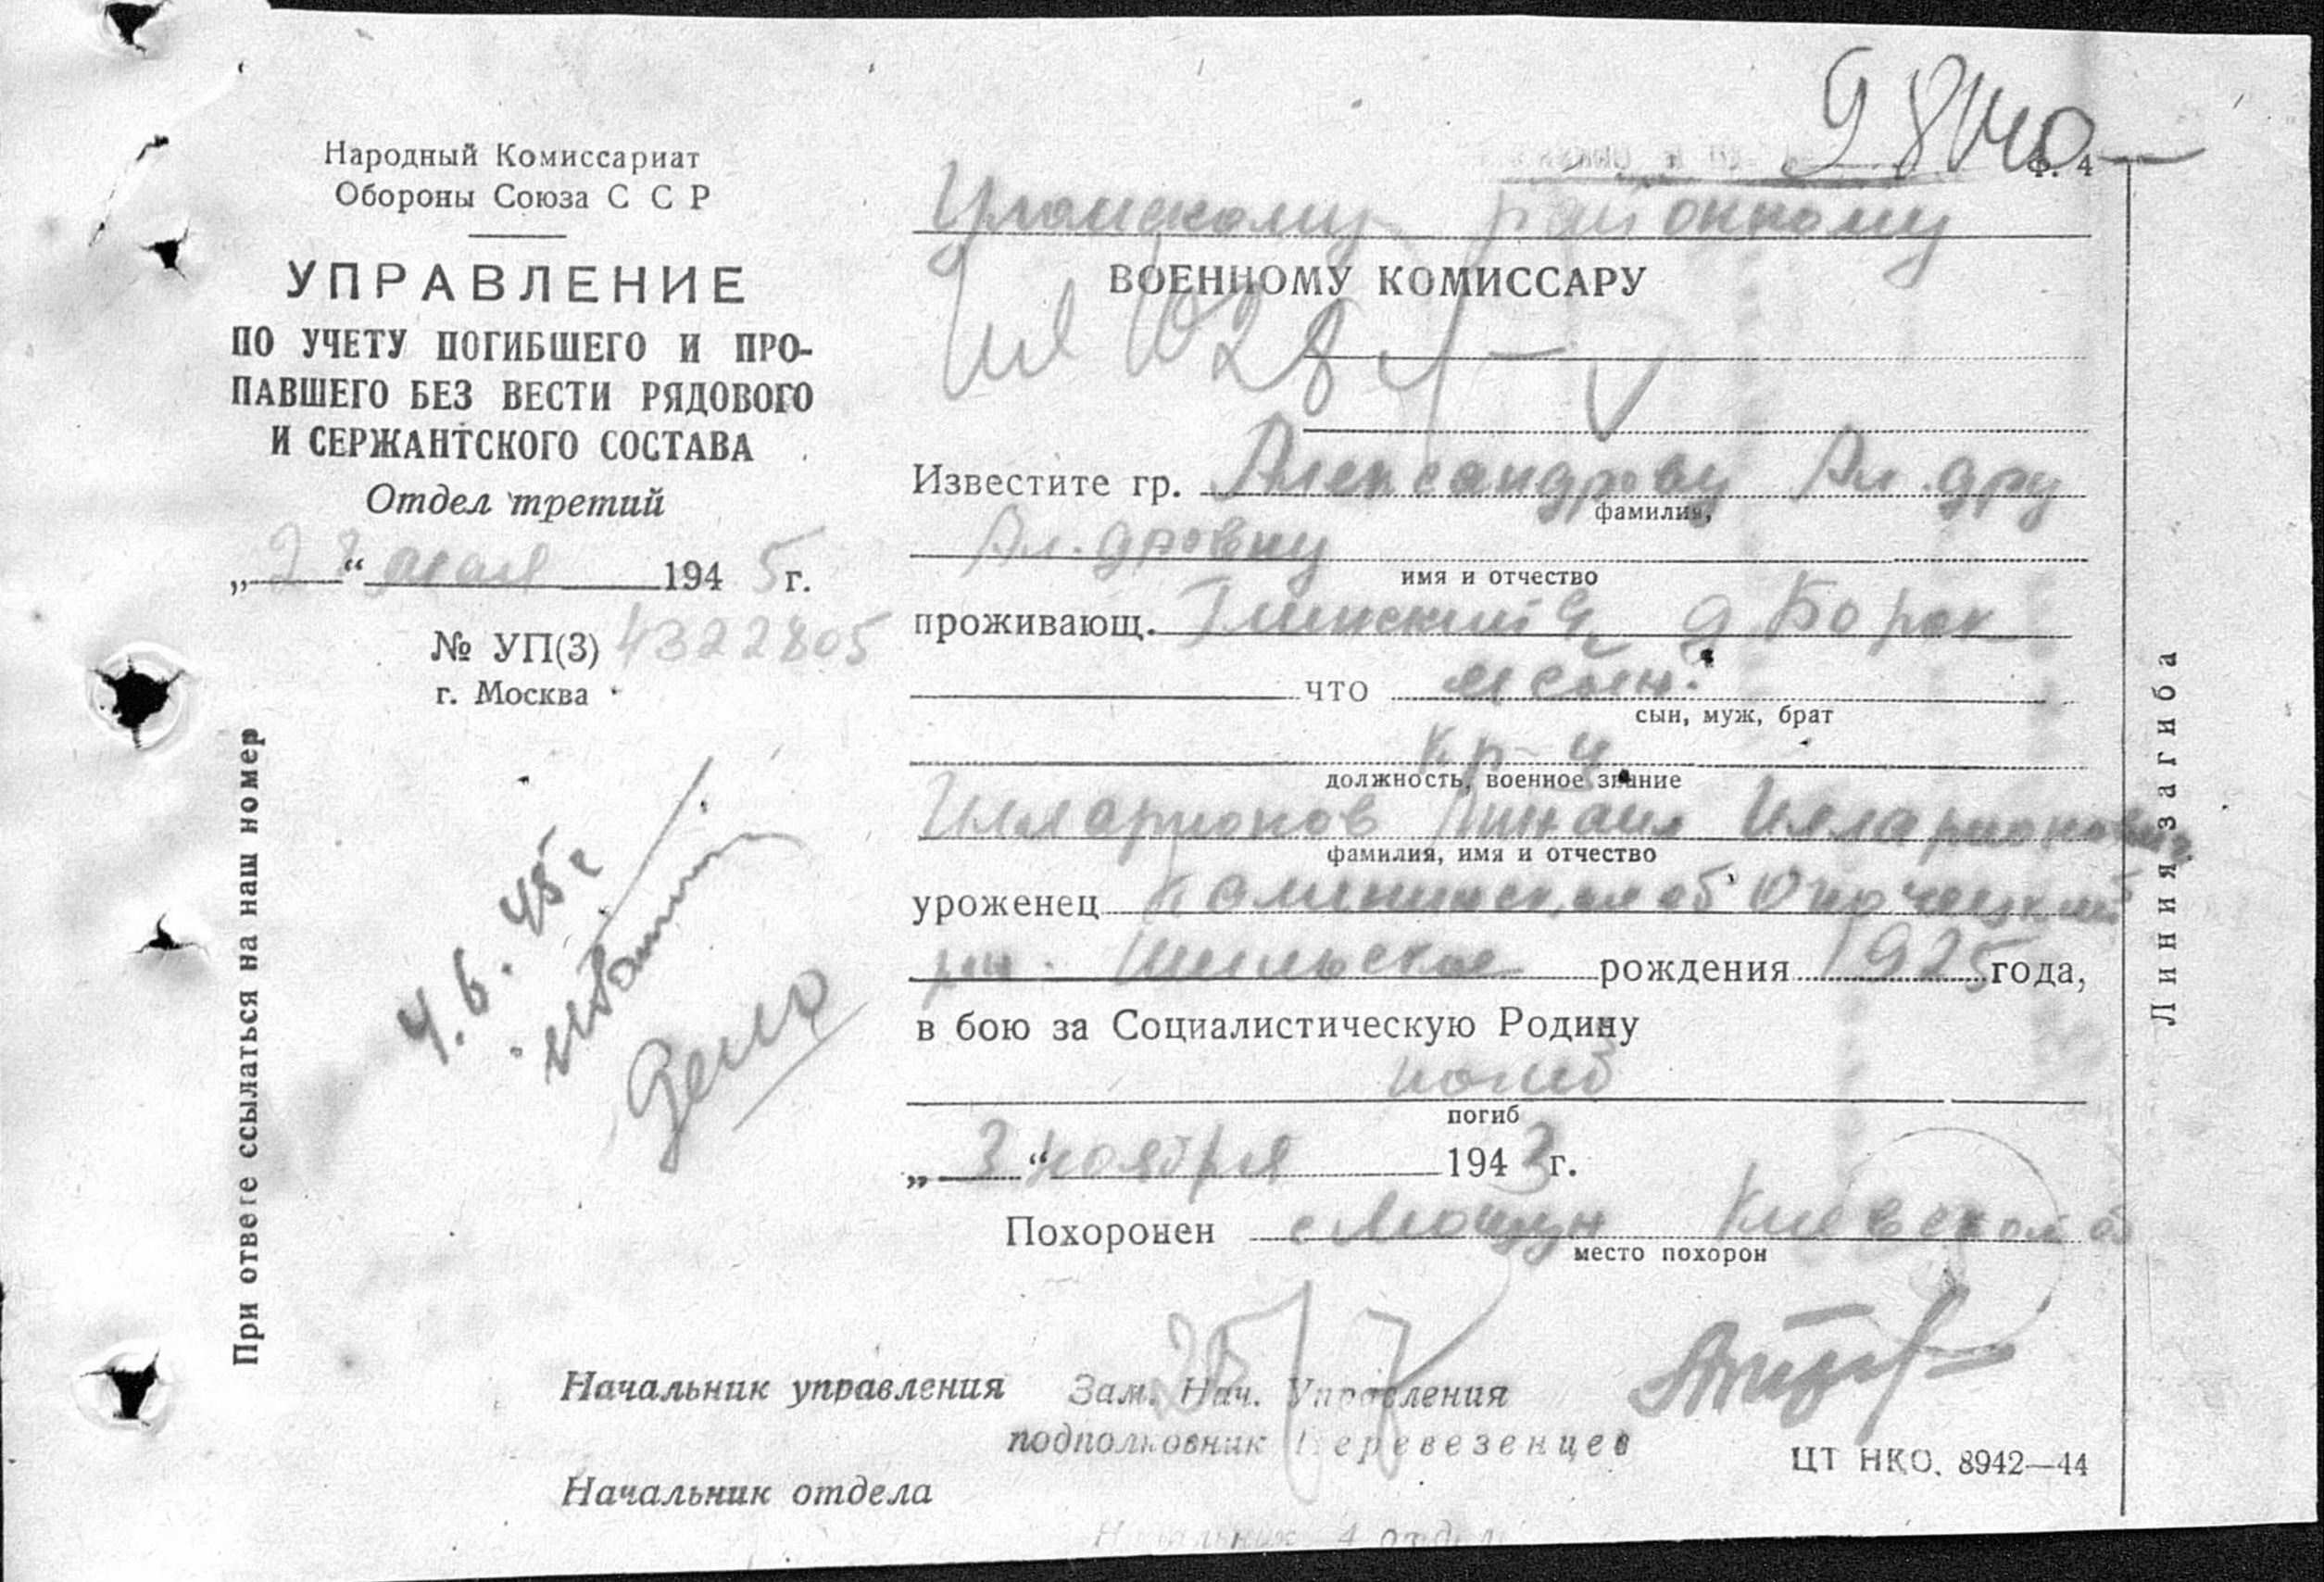 Народный Комиссариат
Обороны Союза С С Р
УПРАВЛЕНИЕ
ПО УЧЕТУ ПОГИБШЕГО И ПРО-
ПАВШЕГО БЕЗ ВЕСТИ РЯДОВОГО
И СЕРЖАНТСКОГО СОСТАВА
Отдел третий
„ “ мая 1945 г.
№ УП(3) 4322805
г. Москва
При ответе ссылаться на наш номер
4.6.45 г
Дело
Ф. 4
районному
ВОЕННОМУ КОМИССАРУ
Известите гр. Александрову Ал.дру
фамилия,
Ал.дровну
имя и отчество
проживающ. д Борок
что сын
сын, муж, брат
кр-ц
должность, военное звание
Илларионов Михаил Илларионович
фамилия, имя и отчество
уроженец Калининск. об Опочецкий
рн. рождения 1925 года,
в бою за Социалистическую Родину
погиб
погиб
„3“ ноября 1943 г.
Похоронен с Мощун Киевской об
место похорон
25/7
Начальник управления Зам. Нач. Управления
подполковник Перевезенцев
Начальник отдела
Начальник 4 отдела
ЦТ НКО. 8942—44
Линия загиба